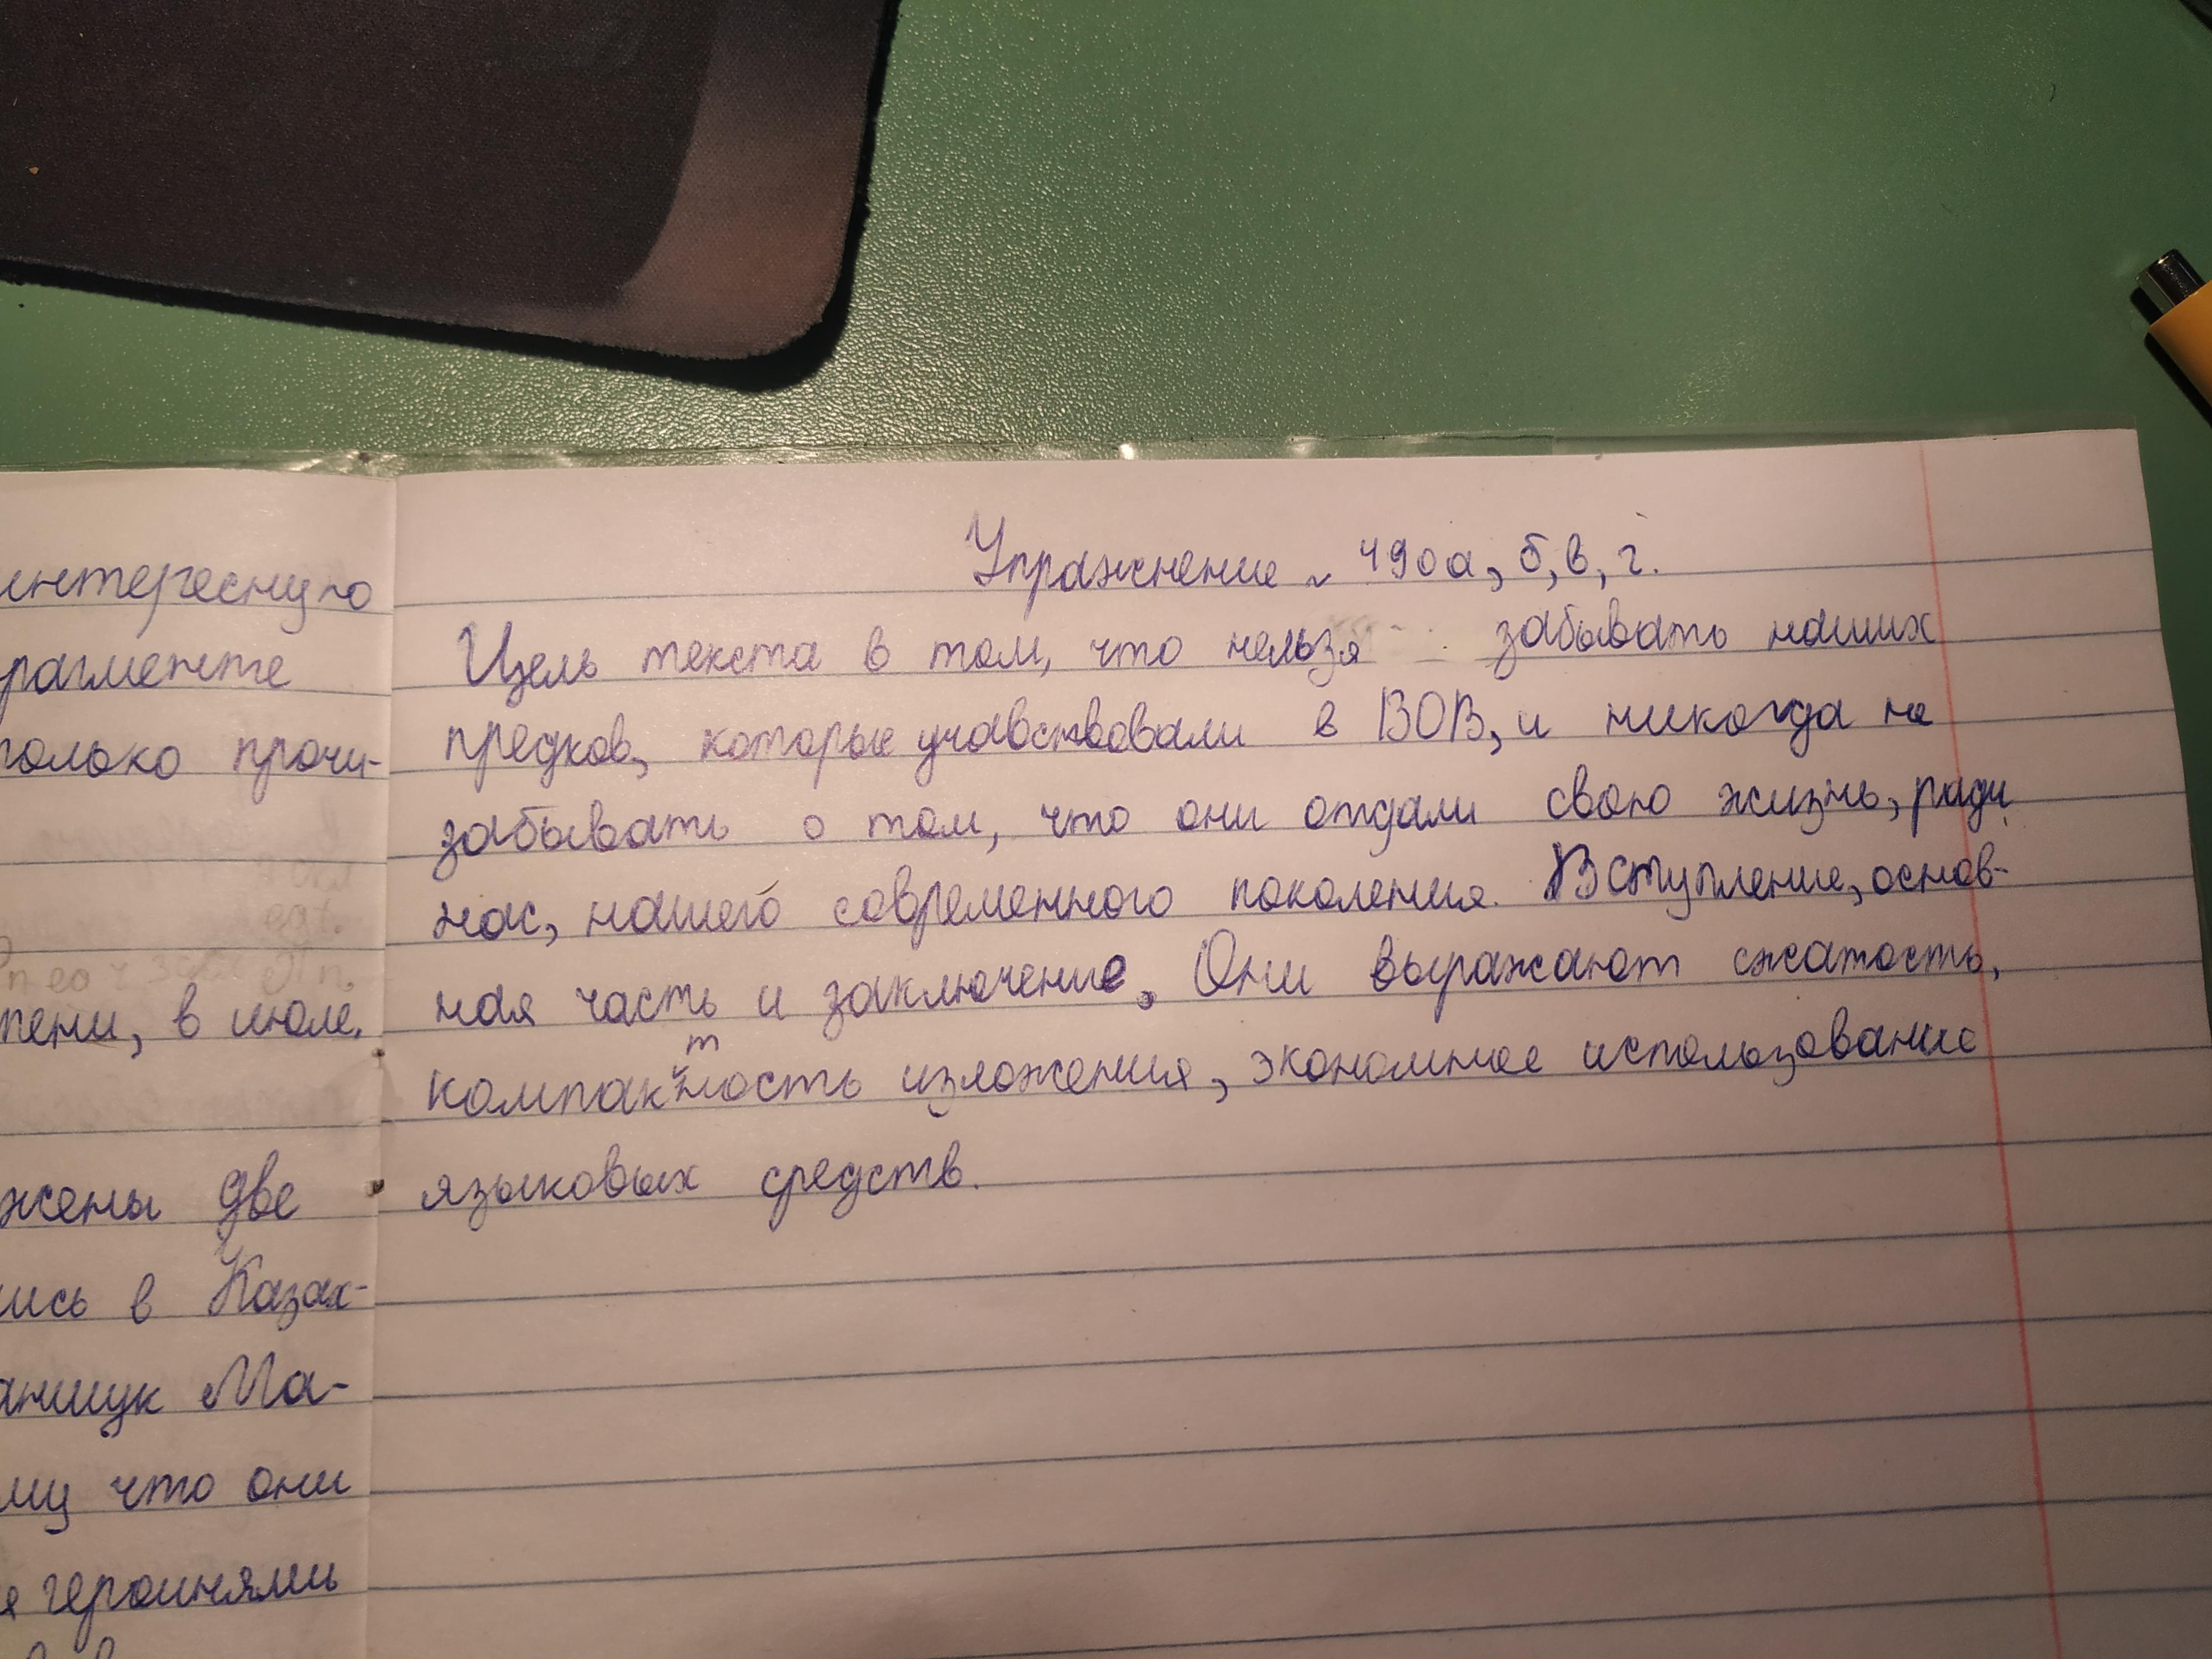 интересную
рагменте
только прочи-
пени, в июле.
жены две
ись в Казах-
аншук Ма-
му что они
я героинями
Упражнение ~ 490а, б, в, г.
Цель текста в том, что нельзя забывать наших
предков, которые учавствовали в ВОВ, и никогда не
забывать о том, что они отдали свою жизнь, ради
нас, нашего современного поколения. Вступление, основ-
ная часть и заключение. Они выражают сжатость,
компактность изложения, экономное использование
языковых средств.